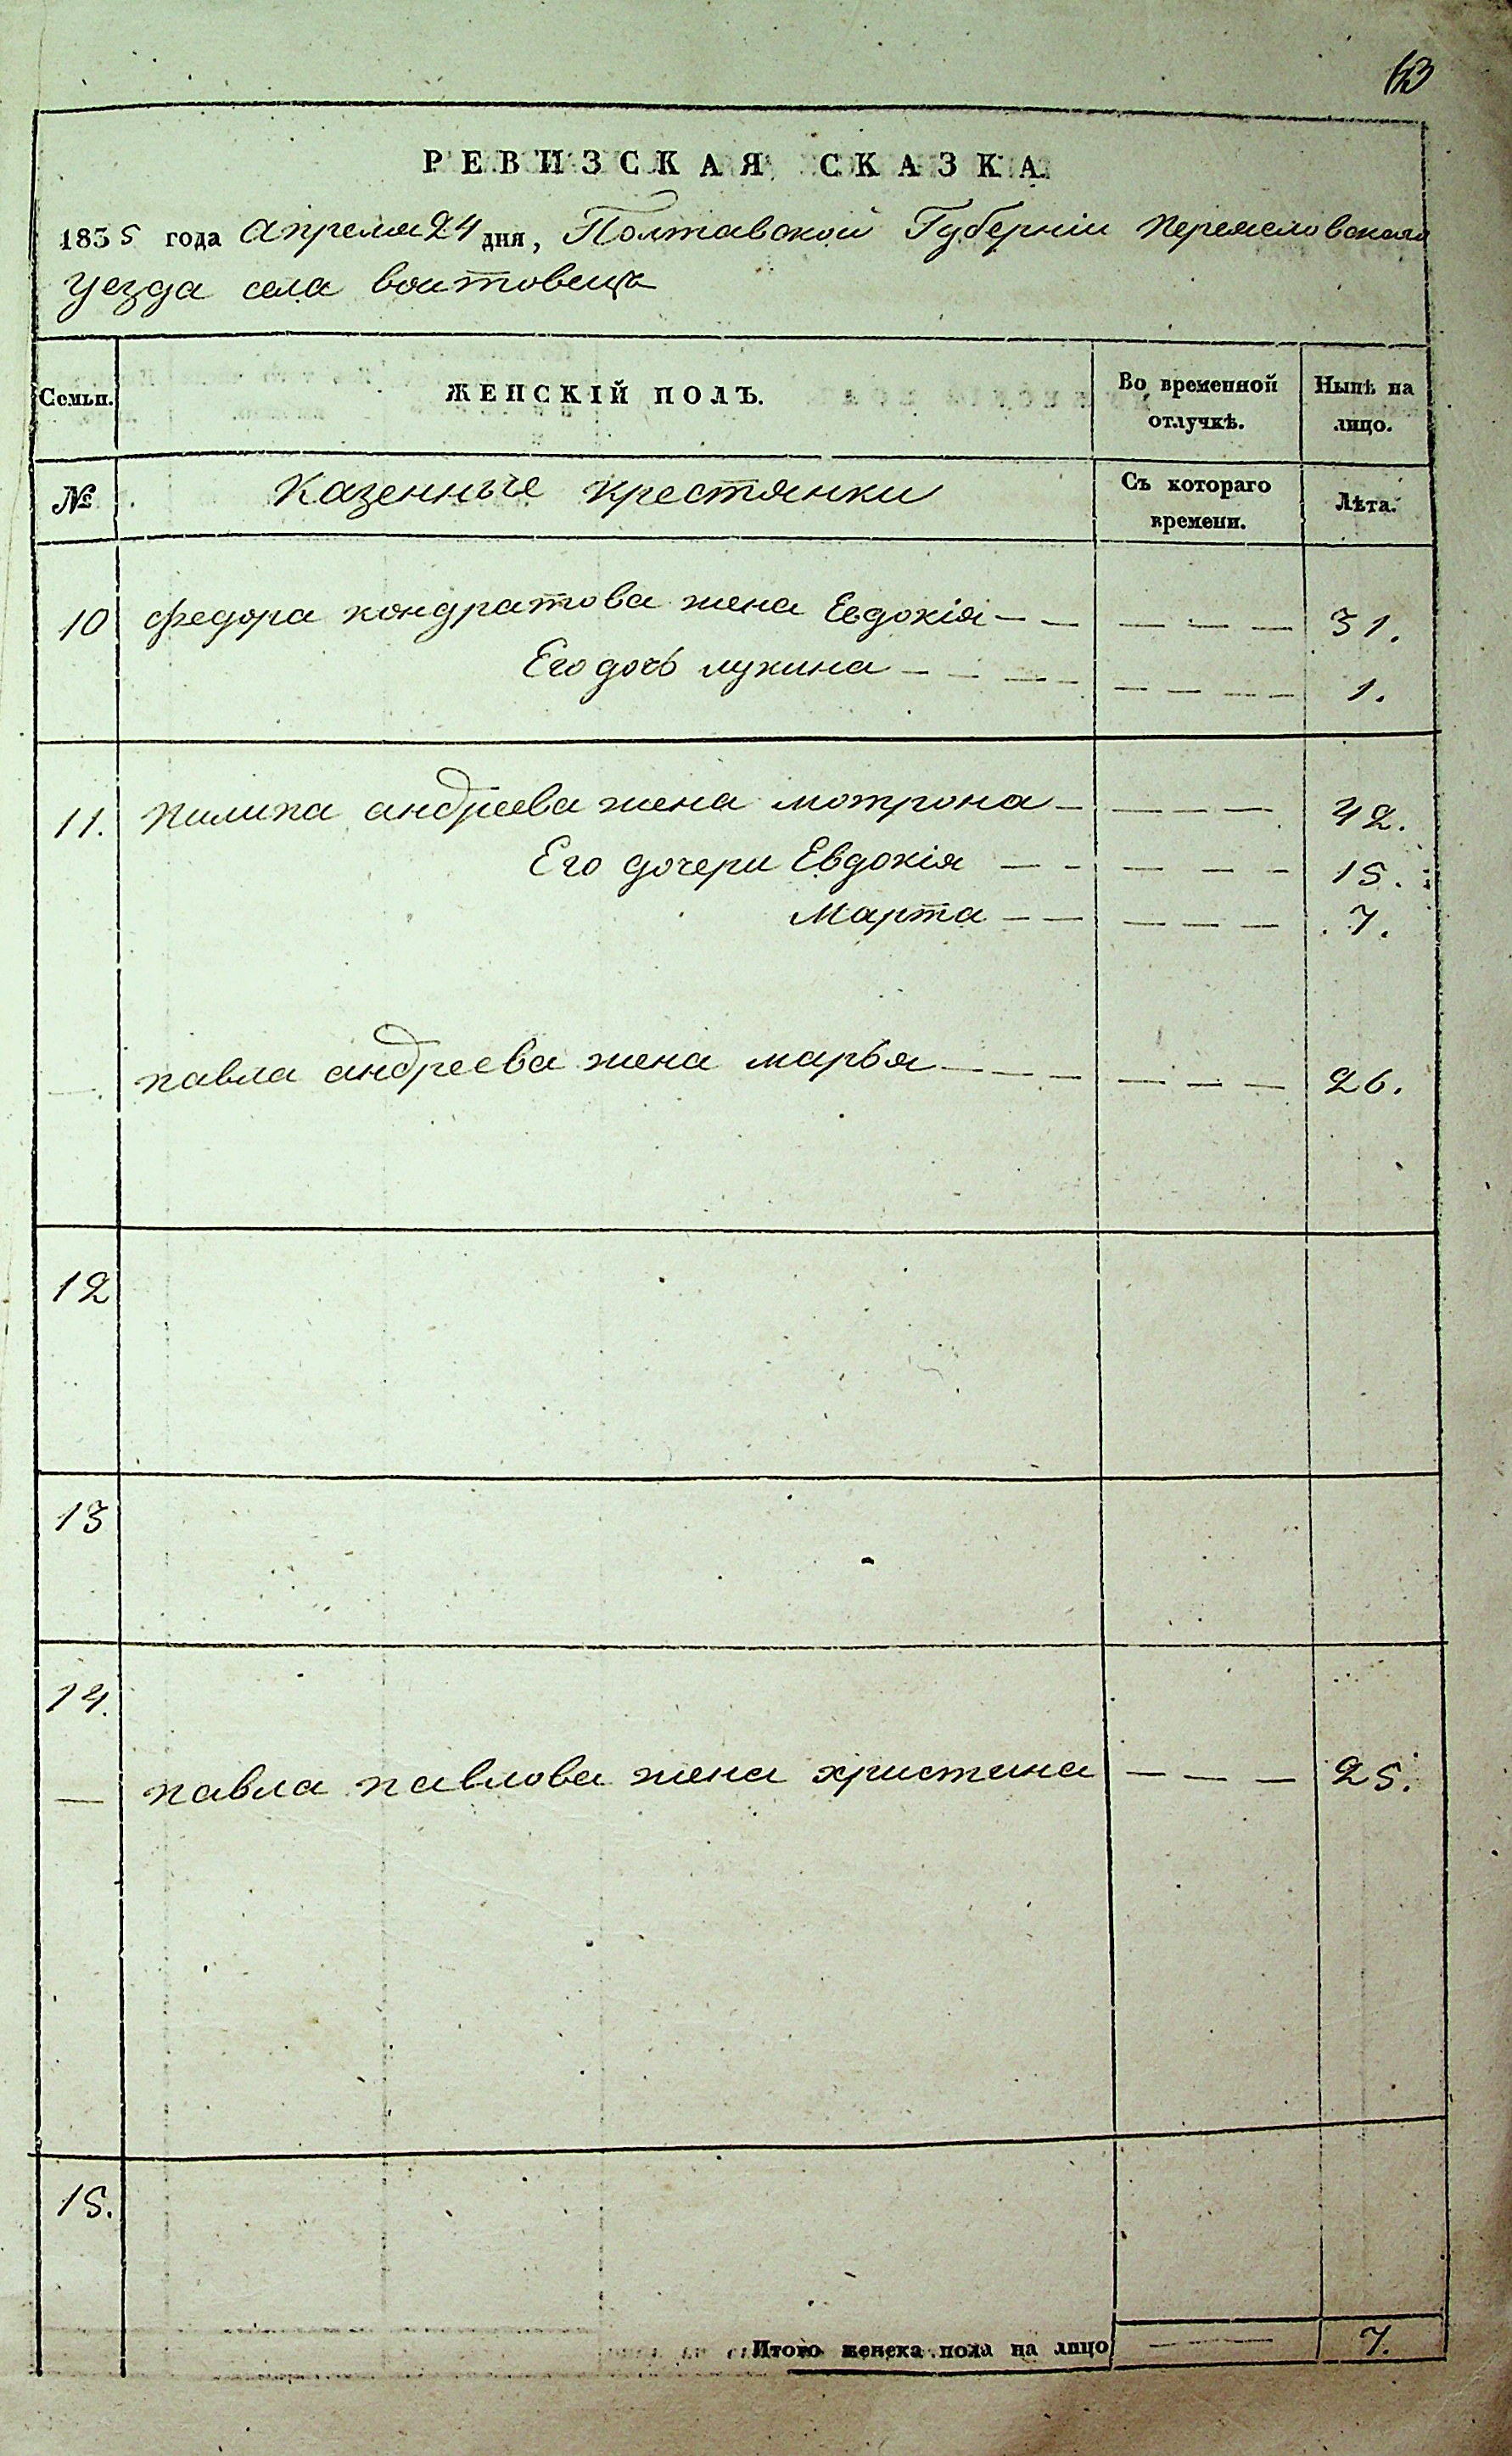 13
РЕВИЗСКАЯ СКАЗКА
1835 года апреля 24 дня, Полтавской Губерніи Переясловскаго
уезда села воитовецъ
Семьи. ЖЕНСКІЙ ПОЛЪ. Во временной отлучкѣ. Нынѣ на лицо.
№ Казенные крестянки Съ котораго времени. Лѣта.
10 федора кондратова жена Евдокія — — — — — 31.
Его дочь лукина — — — — — — — — 1.
11. пилипа андреева жена мотрона — — — — 42.
Его дочери Евдокія — — — — — 15.
Марта — — — — — 7.
— павла андреева жена марья — — — — — — 26.
12
13
14.
— павла павлова жена христина — — — 25.
15.
Итого женска пола на лицо — 7.